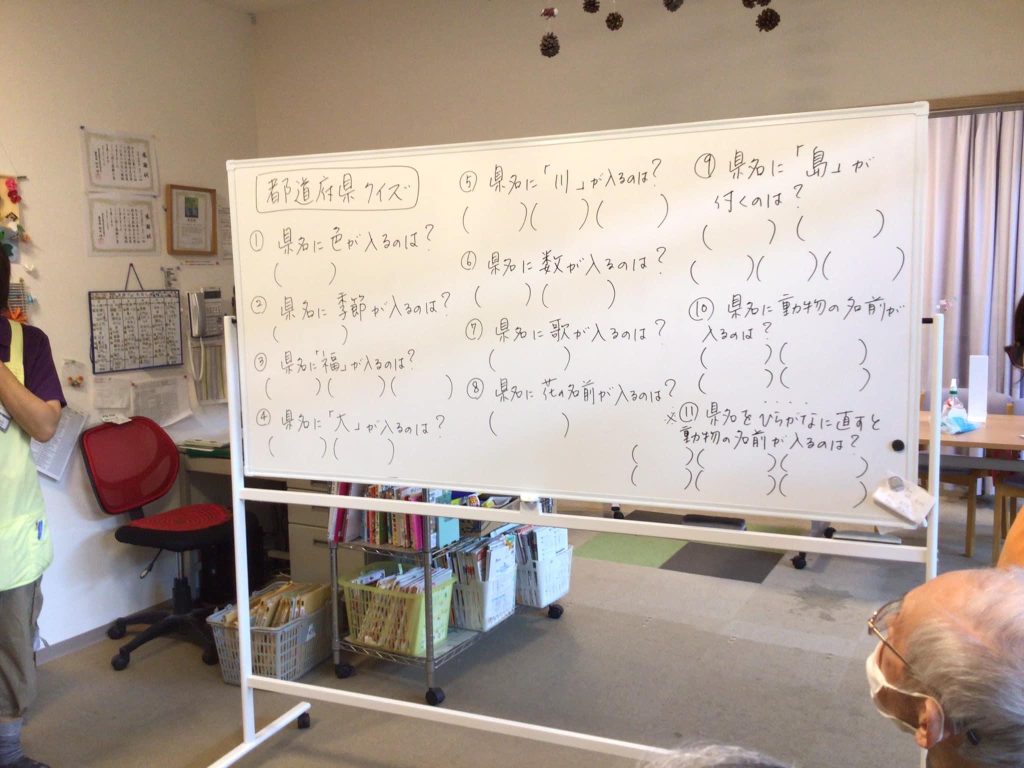 都道府県クイズ
① 県名に色が入るのは?
( )
② 県名に季節が入るのは?
( )
③ 県名に「福」が入るのは?
( )( )( )
④ 県名に「大」が入るのは?
( )( )
⑤ 県名に「川」が入るのは?
( )( )( )
⑥ 県名に数が入るのは?
( )( )
⑦ 県名に歌が入るのは?
( )
⑧ 県名に花の名前が入るのは?
( )
⑨ 県名に「島」が
付くのは?
( )( )
( )( )( )
⑩ 県名に動物の名前が
入るのは?
( )( )
( )( )
※⑪ 県名をひらがなに直すと
動物の名前が入るのは?
( )( )( )
( )( )( )
感謝状
感謝状